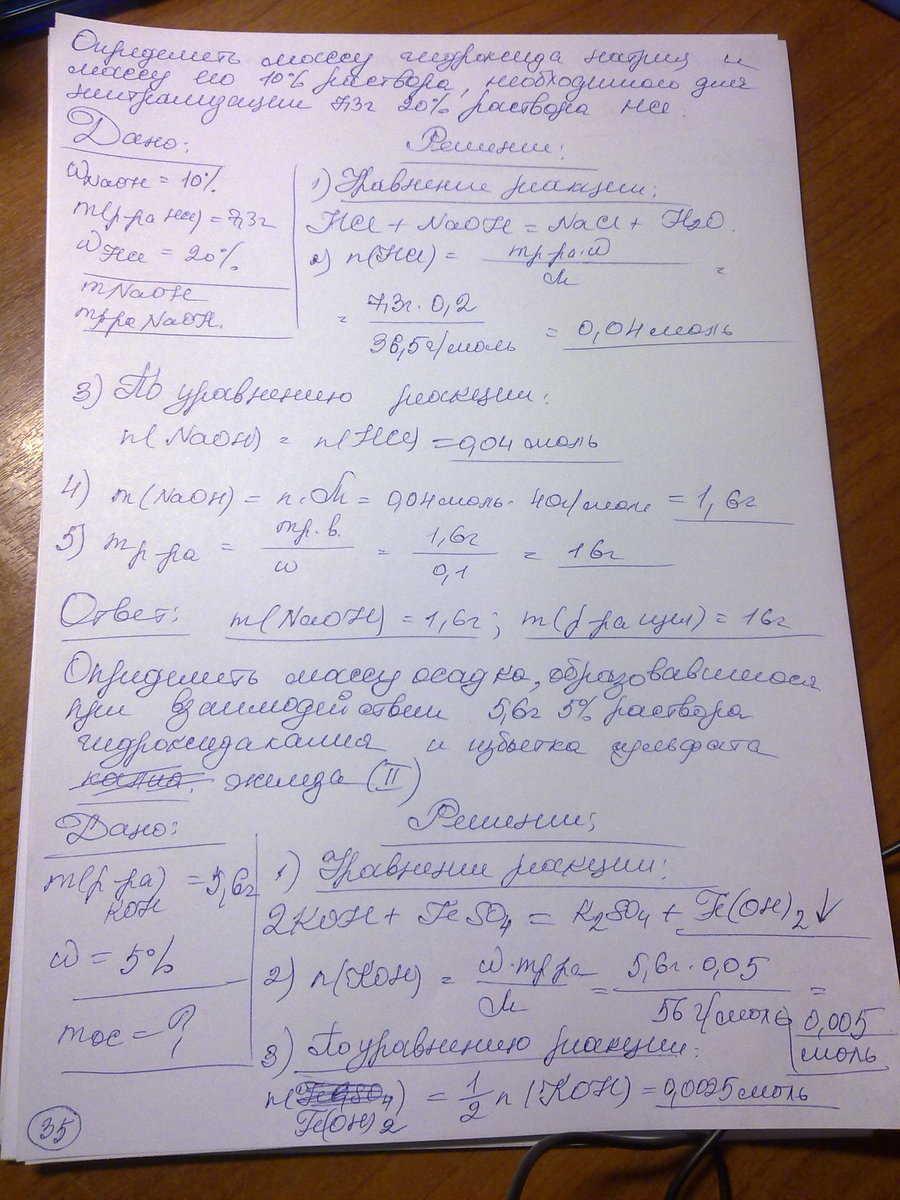 Определить массу гидроксида натрия и
массу его 10% раствора, необходимого для
нейтрализации 7,3г 20% раствора HCl.
Дано:
ω NaOH = 10%
m(р-ра HCl) = 7,3г
ω HCl = 20%
m NaOH
m р-ра NaOH.
Решение:
1) Уравнение реакции:
HCl + NaOH = NaCl + H2O.
2) n(HCl) = m р-ра·ω / M =
= 7,3г · 0,2 / 36,5 г/моль = 0,04 моль
3) По уравнению реакции:
n(NaOH) = n(HCl) = 0,04 моль
4) m(NaOH) = n·M = 0,04 моль · 40г/моль = 1,6г
5) m р-ра = m р.в. / ω = 1,6г / 0,1 = 16г
Ответ: m(NaOH) = 1,6г; m(р-ра щел) = 16г
Определить массу осадка, образовавшегося
при взаимодействии 5,6г 5% раствора
гидроксида калия и избытка сульфата
железа (II)
Дано:
m(р-ра) KOH = 5,6г
ω = 5%
m ос = ?
Решение:
1) Уравнение реакции:
2KOH + FeSO4 = K2SO4 + Fe(OH)2↓
2) n(KOH) = ω·m р-ра / M = 5,6г · 0,05 / 56 г/моль =
0,005 моль
3) По уравнению реакции:
n(Fe(OH)2) = 1/2 n(KOH) = 0,0025 моль
35